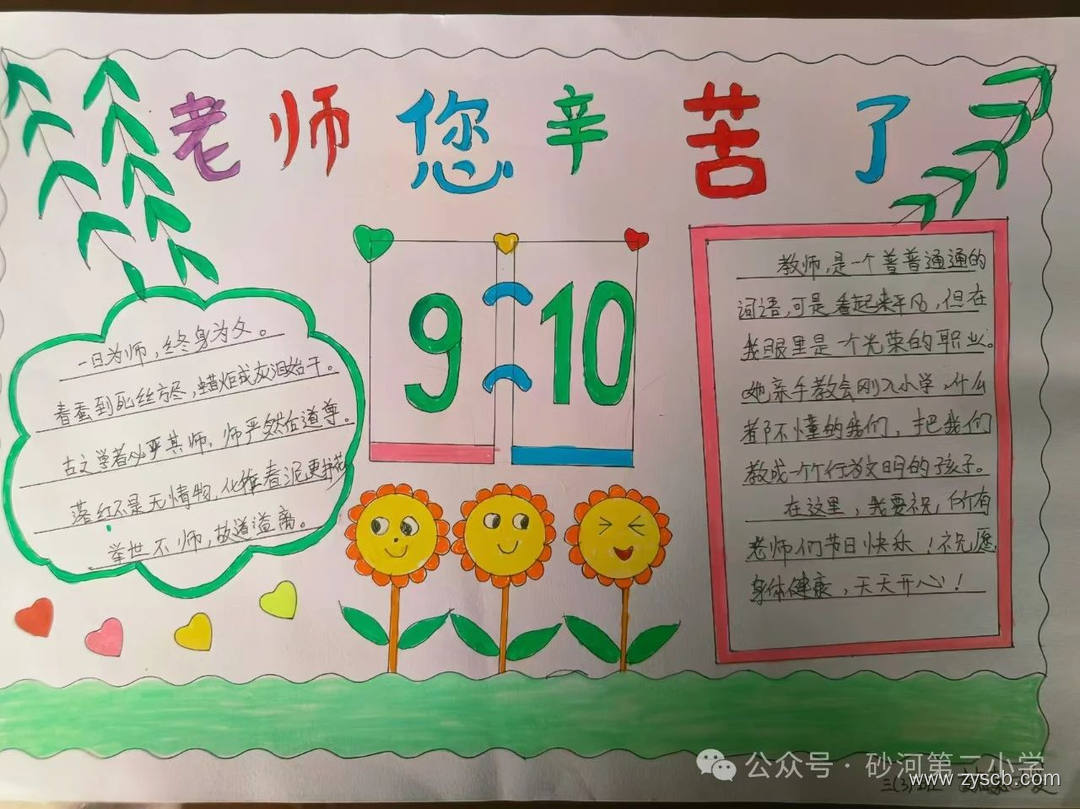 老师您辛苦了
9 10
一日为师，终身为父。
春蚕到死丝方尽，蜡炬成灰泪始干。
古文学者必严其师，师严然后道尊。
落红不是无情物，化作春泥更护花
举世不师，故道益离。
教师，是一个普普通通的
词语，可是看起来平凡，但在
我眼里是一个光荣的职业。
她亲手教会刚入小学，什么
都不懂的我们，把我们
教成一个个行为文明的孩子。
在这里，我要祝，所有
老师们节日快乐！祝愿
身体健康，天天开心！
公众号·砂河第二小学
www.zyscb.com
三(3)班